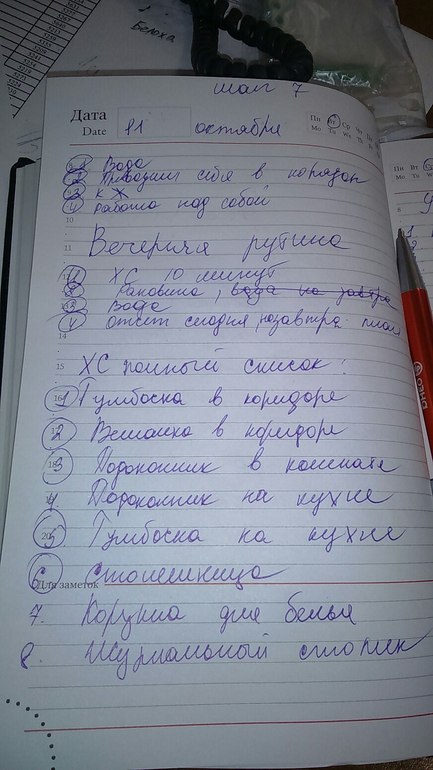 Белоха
шаг 7
Дата
Date 11 октября
Пн Вт Ср Чт
Mo Tu We Th
1 Вода
2 Приводим себя в порядок
3 к Ж
4 работа над собой
10
11 Вечерняя рутина
1 ХС 10 минут
2 Раковина, вода на завтра
3 Вода
4 отчет сегодня, назавтра план
14
15 ХС полный список:
16 1 Тумбочка в коридоре
2 Вешалка в коридоре
18 3 Подоконник в комнате
4. Подоконник на кухне
20 5. Тумбочка на кухне
6 столешница
Для заметок
7. Корзина для белья
8. Журнальный столик